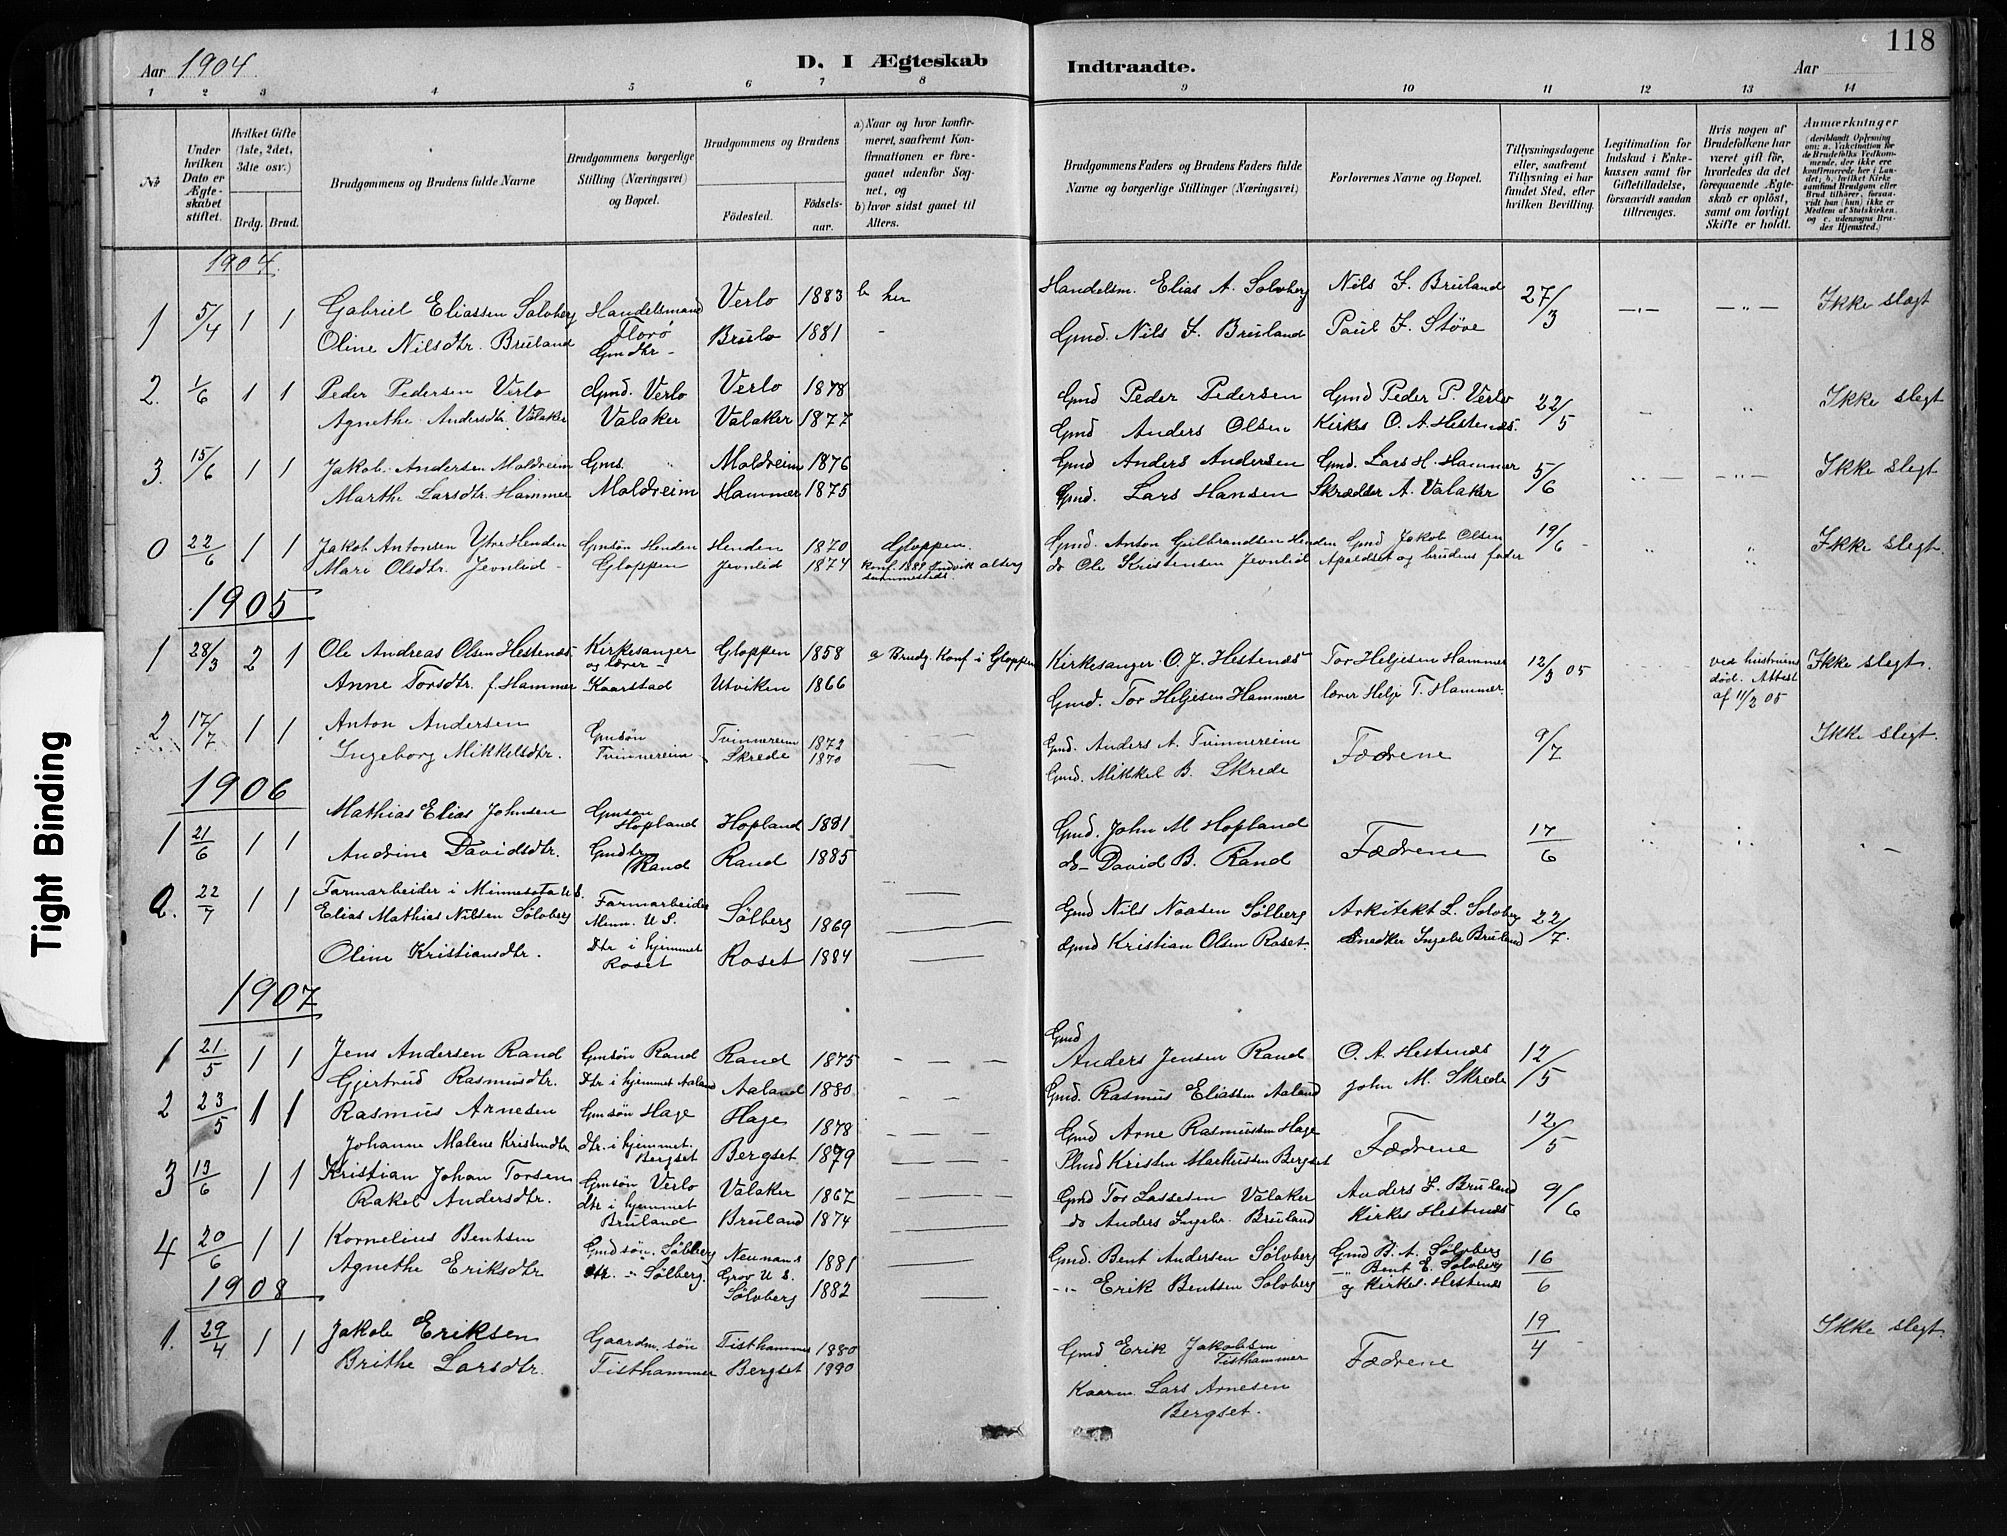 118
Aar 1904.
D. I Ægteskab Indtraadte.
Aar
1 2 3 4 5 6 7 8 9 10 11 12 13 14
No
Under hvilken Dato er Ægteskabet stiftet.
Hvilket Gifte (1ste, 2det, 3die osv.)
Brdg. Brud.
Brudgommens og Brudens fulde Navne
Brudgommens borgerlige Stilling (Næringsvei) og Bopæl.
Brudgommens og Brudens
Fødested.
Fødselsaar.
a) Naar og hvor konfirmeret, saafremt Konfirmationen er foregaaet udenfor Sognet, og
b) hvor sidst gaaet til Alters.
Brudgommens Faders og Brudens Faders fulde Navne og borgerlige Stillinger (Næringsvei)
Forlovernes Navne og Bopæl.
Tillysningsdagene eller, saafremt Tillysning ei har fundet Sted, efter hvilken Bevilling.
Legitimation for Indskud i Enkekassen samt for Giftetilladelse, forsaavidt saadan tiltrænges.
Hvis nogen af Brudefolkene har været gift før, hvorledes da det foregaaende Ægteskab er opløst, samt om lovligt Skifte er holdt.
Anmærkninger
(deriblandt Oplysning om: a. Vakcination for de Brudefolks Vedkommende, der ikke ere konfirmerede her i Landet; b. hvilket Kirkesamfund Brudgom eller Brud tilhører, forsaavidt han (hun) ikke er Medlem af Statskirken, og c. udensogns Brudes Hjemsted.)
1904.
1 5/4 1 1 Gabriel Eliassen Solvberg Handelsmand Florø Verlo 1883 b her Handelsm. Elias A. Solvberg Nils J. Bruland 27/3 Ikke slægt
Oline Nilsdtr. Bruland Gmdtr - Brulo 1881 - Gmd. Nils J. Bruland Paul J. Støve
2. 1/6 1 1 Peder Pedersen Verlo Gmd. Verlo Verlo 1878 Gmd Peder Pedersen Gmd Peder P. Verlo 22/5 Ikke slegt
Agnethe Andersdtr. Valaker Valaker Valaker 1877 Gmd. Anders Olsen Kirkes O. A. Hestenæs.
3. 15/6 1 1 Jakob Andersen Moldreim Gms. Moldreim 1876 Gmd Anders Andersen Gmd. Lars H. Hammer 5/6 Ikke slegt
Marthe Larsdtr. Hammer Moldreim Hammer 1875 Gmd. Lars Hansen Skrædder A. Valaker
0 22/6 1 1 Jakob Antonsen Ytre Henden Gmsøn Henden Henden 1870 Gloppen. Gmd. Anton Gulbrandsen Henden Gmd Jakob Olsen 19/6 - Ikke slegt.
Mari Olsdtr. Jevnlid - Gloppen Jevnlid 1874 konf. 1889 Indvik alterg sammesteds. do Ole Kristensen Jevnlid Apaldset og brudens fader
1905
1 28/3 2 1 Ole Andreas Olsen Hestenæs. Kirkesanger og lærer - Gloppen 1858 a Brudg. Konf i Gloppen Kirkesanger O. J. Hestenæs Tor Heljesen Hammer 12/3 05 ved hustruens død. Attest af 11/2 05 Ikke slegt.
Anne Torsdtr. f. Hammer Kaarstad Utviken 1866 Gmd. Tor Heljesen Hammer lærer Helje T. Hammer.
2 17/7 1 1 Anton Andersen Gmsøn Tvinnereim 1872 Gmd. Anders A. Tvinnereim Fædrene 9/7 Ikke slegt.
Ingeborg Mikkelsdtr. Tvinnereim Skrede 1870 Gmd. Mikkel B. Skrede
1906
1 21/6 1 1 Mathias Elias Johnsen Gmsøn Hopland Hopland 1881 Gmd. John M Hopland Fædrene 17/6
Andrine Davidsdtr. Gmdtr Rand Rand 1885 do - David B. Rand
2. 22/7 1 1 Farmarbeider i Minnesota U.S. Elias Mathias Nilsen Sølvberg Farmarbeider Minn. U.S. Sølberg 1869 Gmd Nils Noasen Sølberg Arkitekt L. Solvberg 22/7.
Oline Kristiansdtr. Dtr i hjemmet Roset Roset 1884 Gmd Kristian Olsen Roset. Snedker Ingebr Bruland
1907
1 21/5 1 1 Jens Andersen Rand Gmsøn Rand Rand 1875 Gmd Anders Jensen Rand O. A. Hestenæs 12/5
Gjertrud Rasmusdtr. Dtr i hjemmet Aaland Aaland 1880 Gmd. Rasmus Eliassen Aaland John M. Skrede
2 23/5 1 1 Rasmus Arnesen Gmsøn Hage Hage 1878 Gmd Arne Rasmussen Hage Fædrene 12/5
Johanne Malene Kristendtr dtr. i hjemmet. Bergset Bergset 1879 Plmd Kristen Markussen Bergset
3 13/6 1 1 Kristian Johan Torsen Gmsøn Verlo Valaker 1867 Gmd Tor Lassesen Valaker Anders J. Bruland 9/6
Rakel Andersdtr. dtr i hjemmet Bruland Bruland 1874 do Anders Ingebr. Bruland Kirkes Hestenæs
4 20/6 1 1 Kornelius Bentsen Gmdsøn. Sølberg Neumans Grov U.S. 1881 Gmd. Bent Andersen Sølvberg Gmd B. A. Sølvberg 16/6
Agnethe Eriksdtr - " - Sølberg. Sølvberg 1882 - " - Erik Bentsen Solvberg - " Bent E. Solvberg og Kirkes. Hestenæs
1908
1. 29/4 1 1 Jakob Eriksen Gaardm. søn Tisthammer 1880 Gmd Erik Jakobsen Tisthammer Fædrene 19/4 Ikke slegt.
Brithe Larsdtr. Tisthammer Bergset 1890 Kaarm. Lars Arnesen Bergset.
Tight Binding